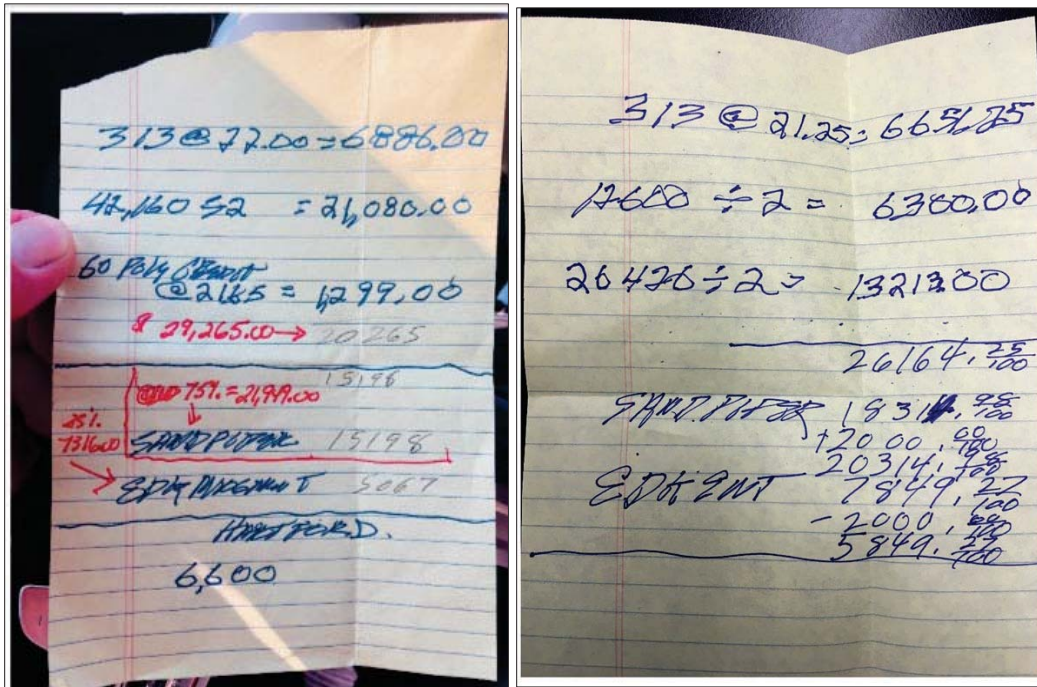 313 @ 22.00 = 6886.00
42,160 ÷ 2 = 21,080.00
60 Poly CREDIT
@ 2165 = 1,299.00
$ 29,265.00 → 20265
15198
75% = 21,949.00
25%
731600
SANDPIPER 15198
EDA 5067
HARTFORD.
6,600
313 @ 21.25 = 6651.25
12600 ÷ 2 = 6300.00
26426 ÷ 2 = 13213.00
26164.25/100
SANDPIPER 18314.98/100
+2000.00/100
20314.98/100
EDA ENT 7849.27/100
-2000.00/100
5849.27/100